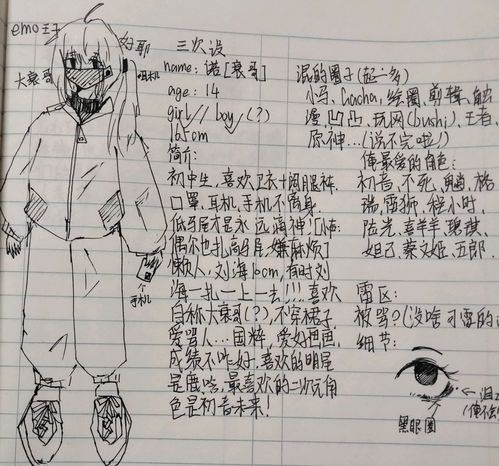 emo王子
好耶
大衰哥
耳机
三次设
name: 诺[衰哥]
age: 14
girl // boy√(?)
165cm
简介:
初中生,喜欢卫衣+阔腿裤.
口罩、耳机、手机不离身.
低马尾才是永远滴神![小声:
偶尔也扎高马尾,嫌麻烦]
懒人,刘海10cm,有时刘
海一扎一上一去!!!喜欢
自称大衰哥(?),不穿裙子.
爱骂人…国粹,爱好画画,
成绩不咋好,喜欢的明星
是鹿晗,最喜欢的二次元角
色是初音未来!
手机
混的圈子(起多)
小马、Gacha、绘圈、剪辑、触
漫、凹凸、玩网(bushi)、王者、
原神…(说不完啦!)
俺最爱的角色:
初音、不死、
瑞、雷狮、程小时、
陆光、喜羊羊、
妲己、蔡文姬、五郎.
雷区:
被骂?(没啥可雷的
细节:
黑眼圈